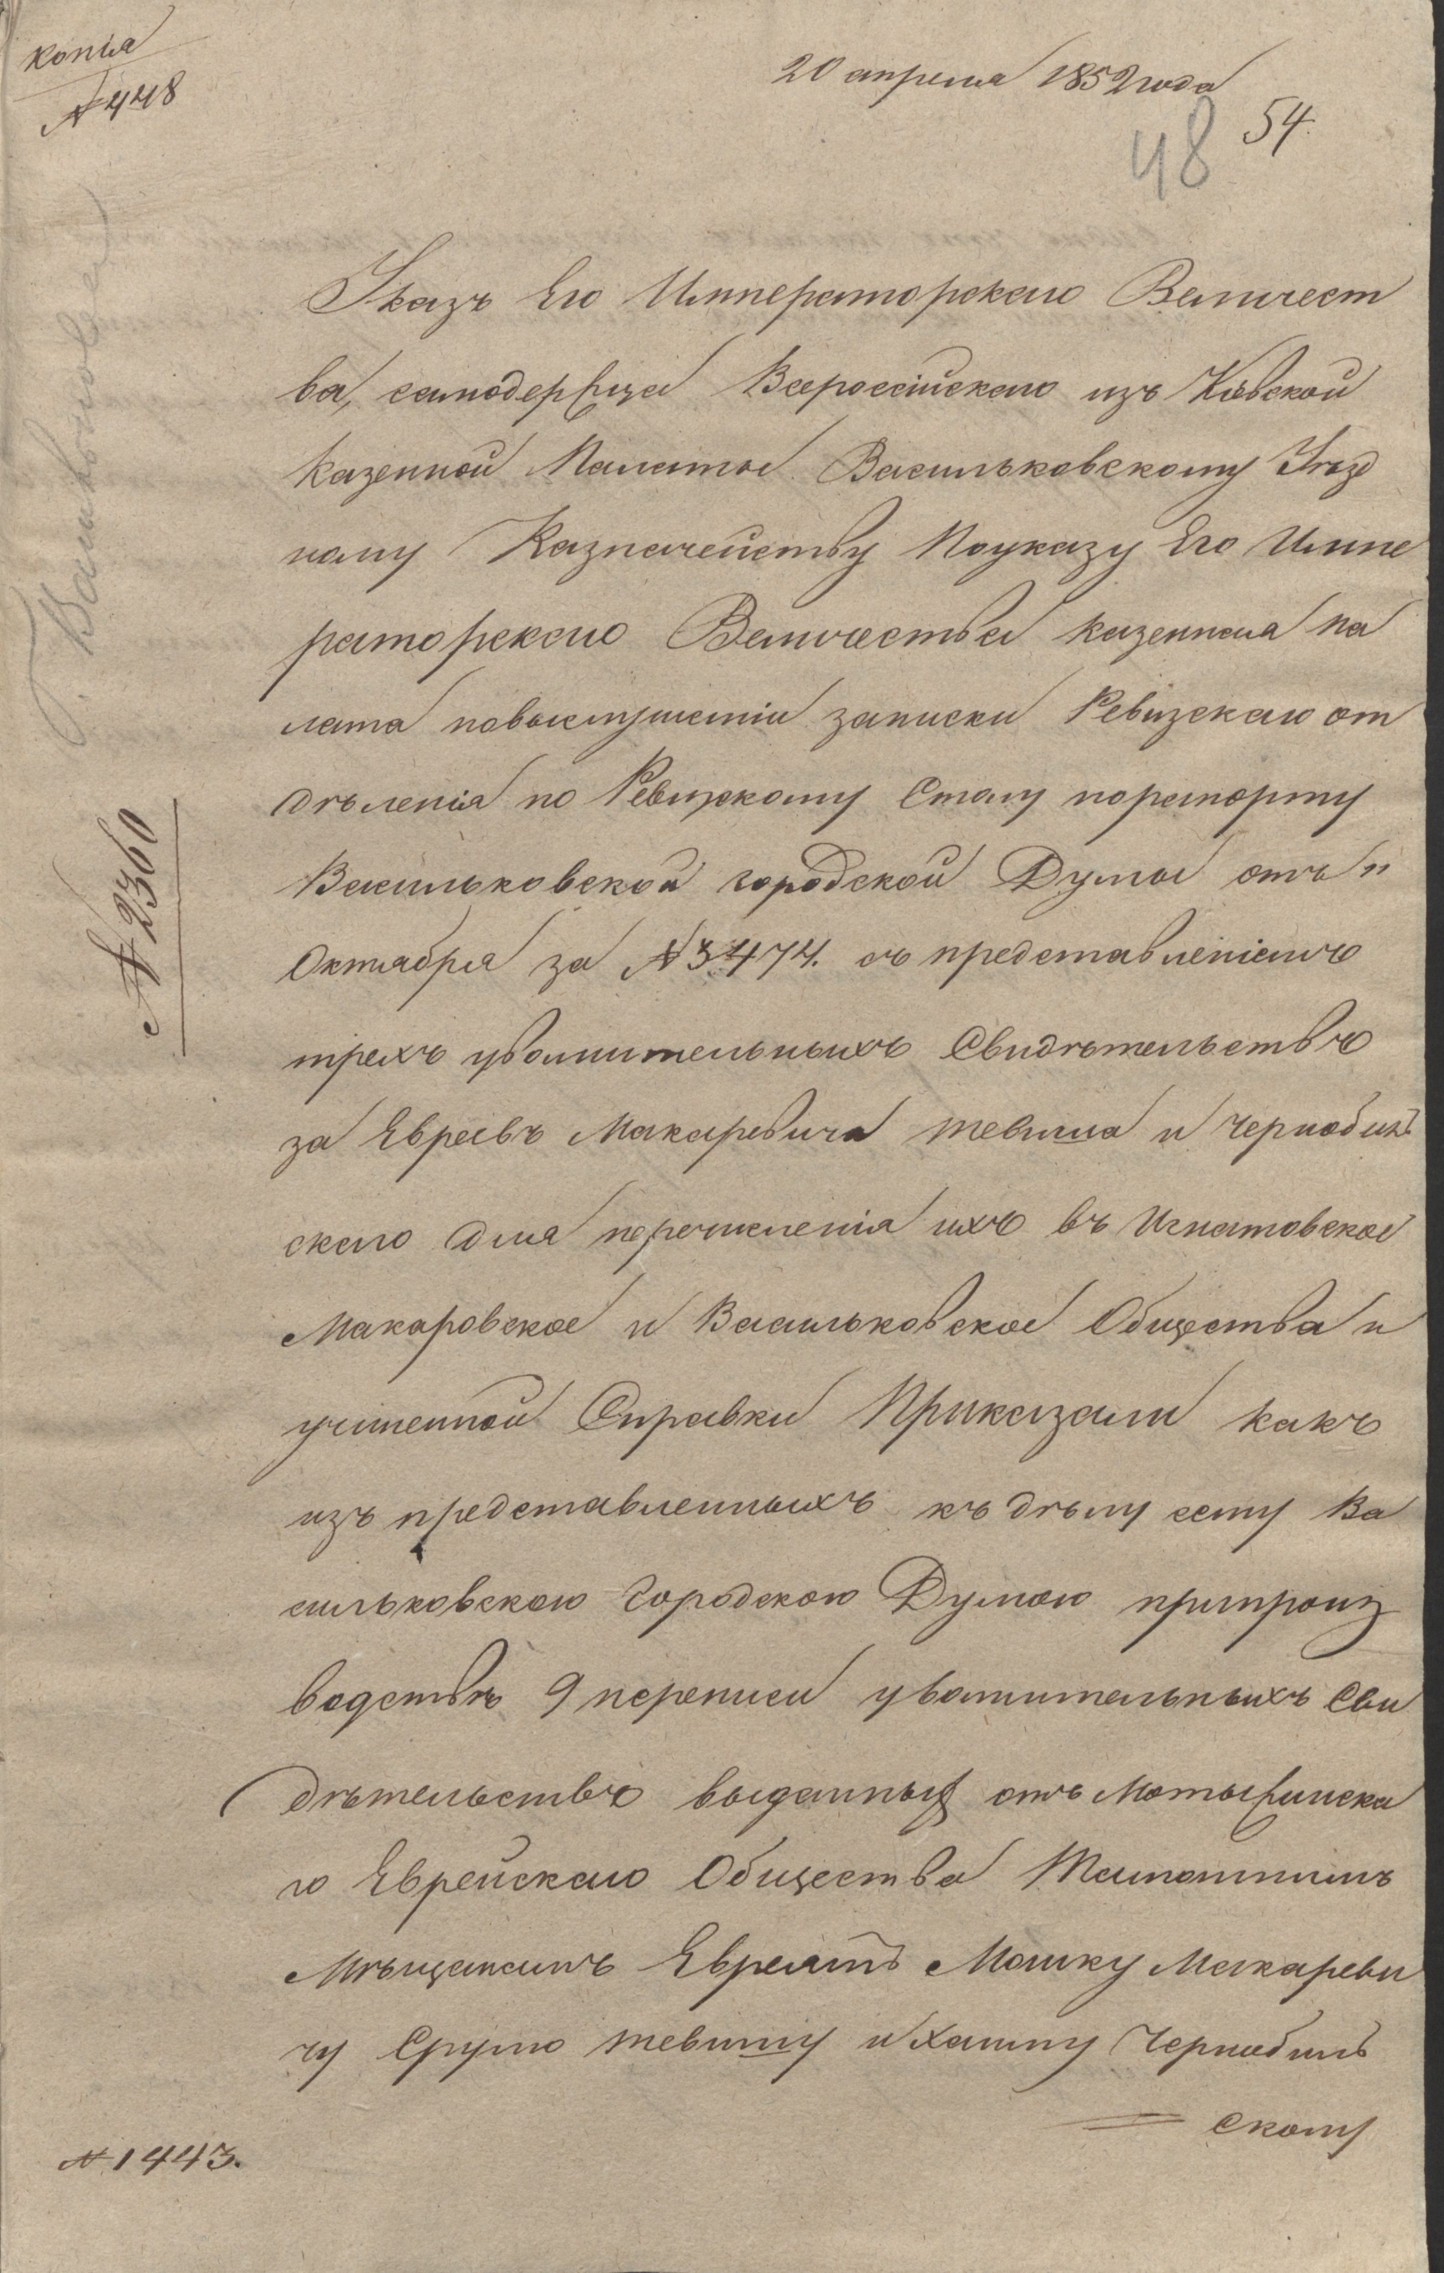 копія
№ 448
20 апреля 1852 года
48 54.
Указъ Его Императорскаго Величест
ва, самодержца Всероссійскаго изъ Кіевской
Казенной Палаты Васильковскому Уѣзд
ному Казначейству Поуказу Его Импе
раторскаго Величества казенная па
лата повыслушаніи записки Ревизскаго от
дѣленія по Ревизскому Столу порапорту
Васильковской городской Думы отъ 11
Октября за № 3474. съ представленіемъ
трехъ увольнительныхъ Свидѣтельствъ
за Евреевъ Макаревича Тевиша и Чернобыль
скаго для перечисленія ихъ въ Игнатовское
Макаровское и Васильковское Общества и
учиненной Справки Приказали какъ
изъ представленныхъ къ дѣлу сему Ва
сильковскою Городскою Думою припроиз
водствѣ 9 переписи увольнительныхъ Сви
дѣтельствъ выданныхъ отъ Мотыжинска
го Еврейскаго Общества Тамошнимъ
Мѣщанамъ Евреямъ Мошку Макареви
чу Срулю Тевишу и Хаиму Чернобыль
скому
№ 2360
№ 1443.